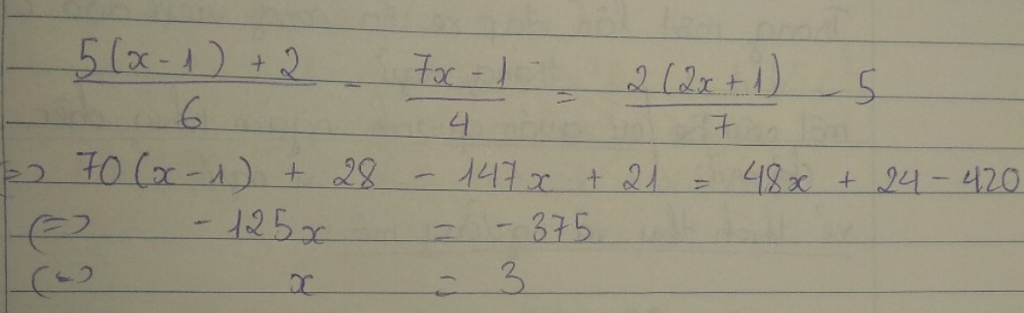 5(x-1) + 2 / 6 - 7x - 1 / 4 = 2(2x+1) / 7 - 5
=> 70(x-1) + 28 - 147x + 21 = 48x + 24 - 420
(=) -125x = -375
(=) x = 3